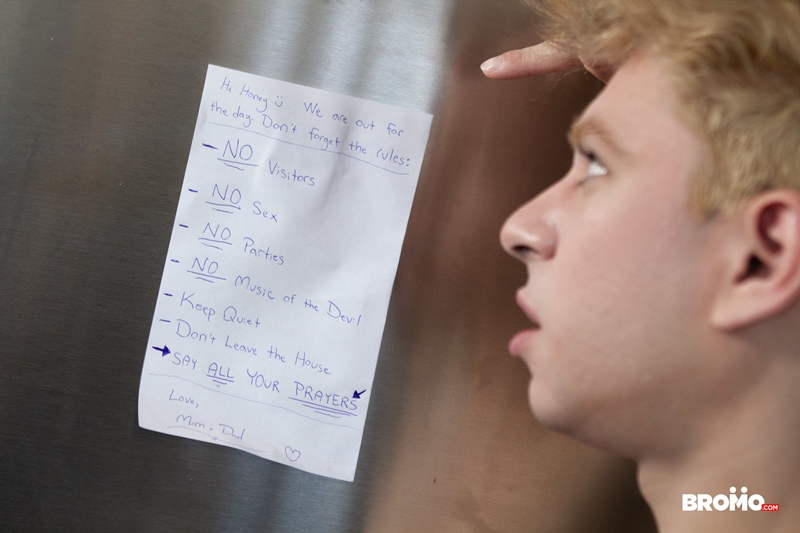 Hi Honey ☺ We are out for
the day. Don't forget the rules:
- NO Visitors
- NO Sex
- NO Parties
- NO Music of the Devil
- Keep Quiet
- Don't Leave the House
→ SAY ALL YOUR PRAYERS
Love,
Mom + Dad ♡
BROMO.COM